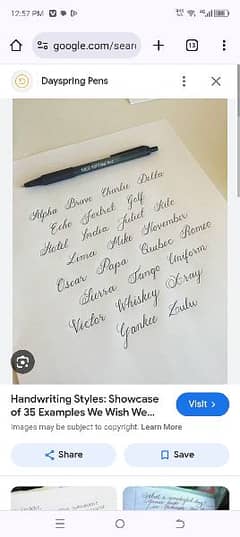 12:57 PM
google.com/sear
13
Dayspring Pens
Alpha Bravo Charlie Delta
Echo Foxtrot Golf
Hotel India Juliet Kilo
Lima Mike November
Oscar Papa Quebec Romeo
Sierra Tango Uniform
Victor Whiskey X-ray
Yankee Zulu
Handwriting Styles: Showcase
of 35 Examples We Wish We...
Visit >
Images may be subject to copyright. Learn More
Share
Save